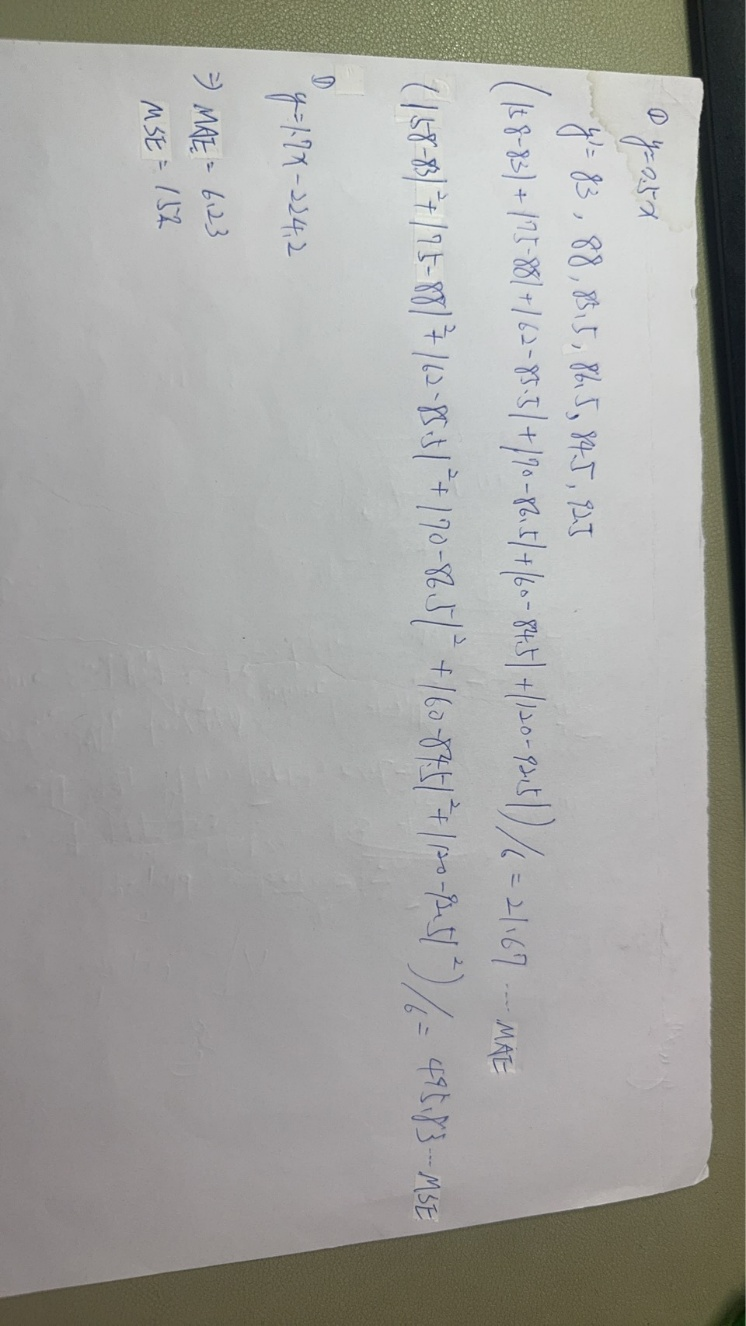 ① y=0.5x
y'= 83, 88, 85.5, 86.5, 84.5, 92.5
(|58-83|+|75-88|+|62-85.5|+|70-86.5|+|60-84.5|+|120-92.5|)/6 = 21.67 ... MAE
(|58-83|²+|75-88|²+|62-85.5|²+|70-86.5|²+|60-84.5|²+|120-92.5|²)/6 = 495.83 ... MSE
①
y=1.7x-224.2
⇒ MAE = 6.23
MSE = 152